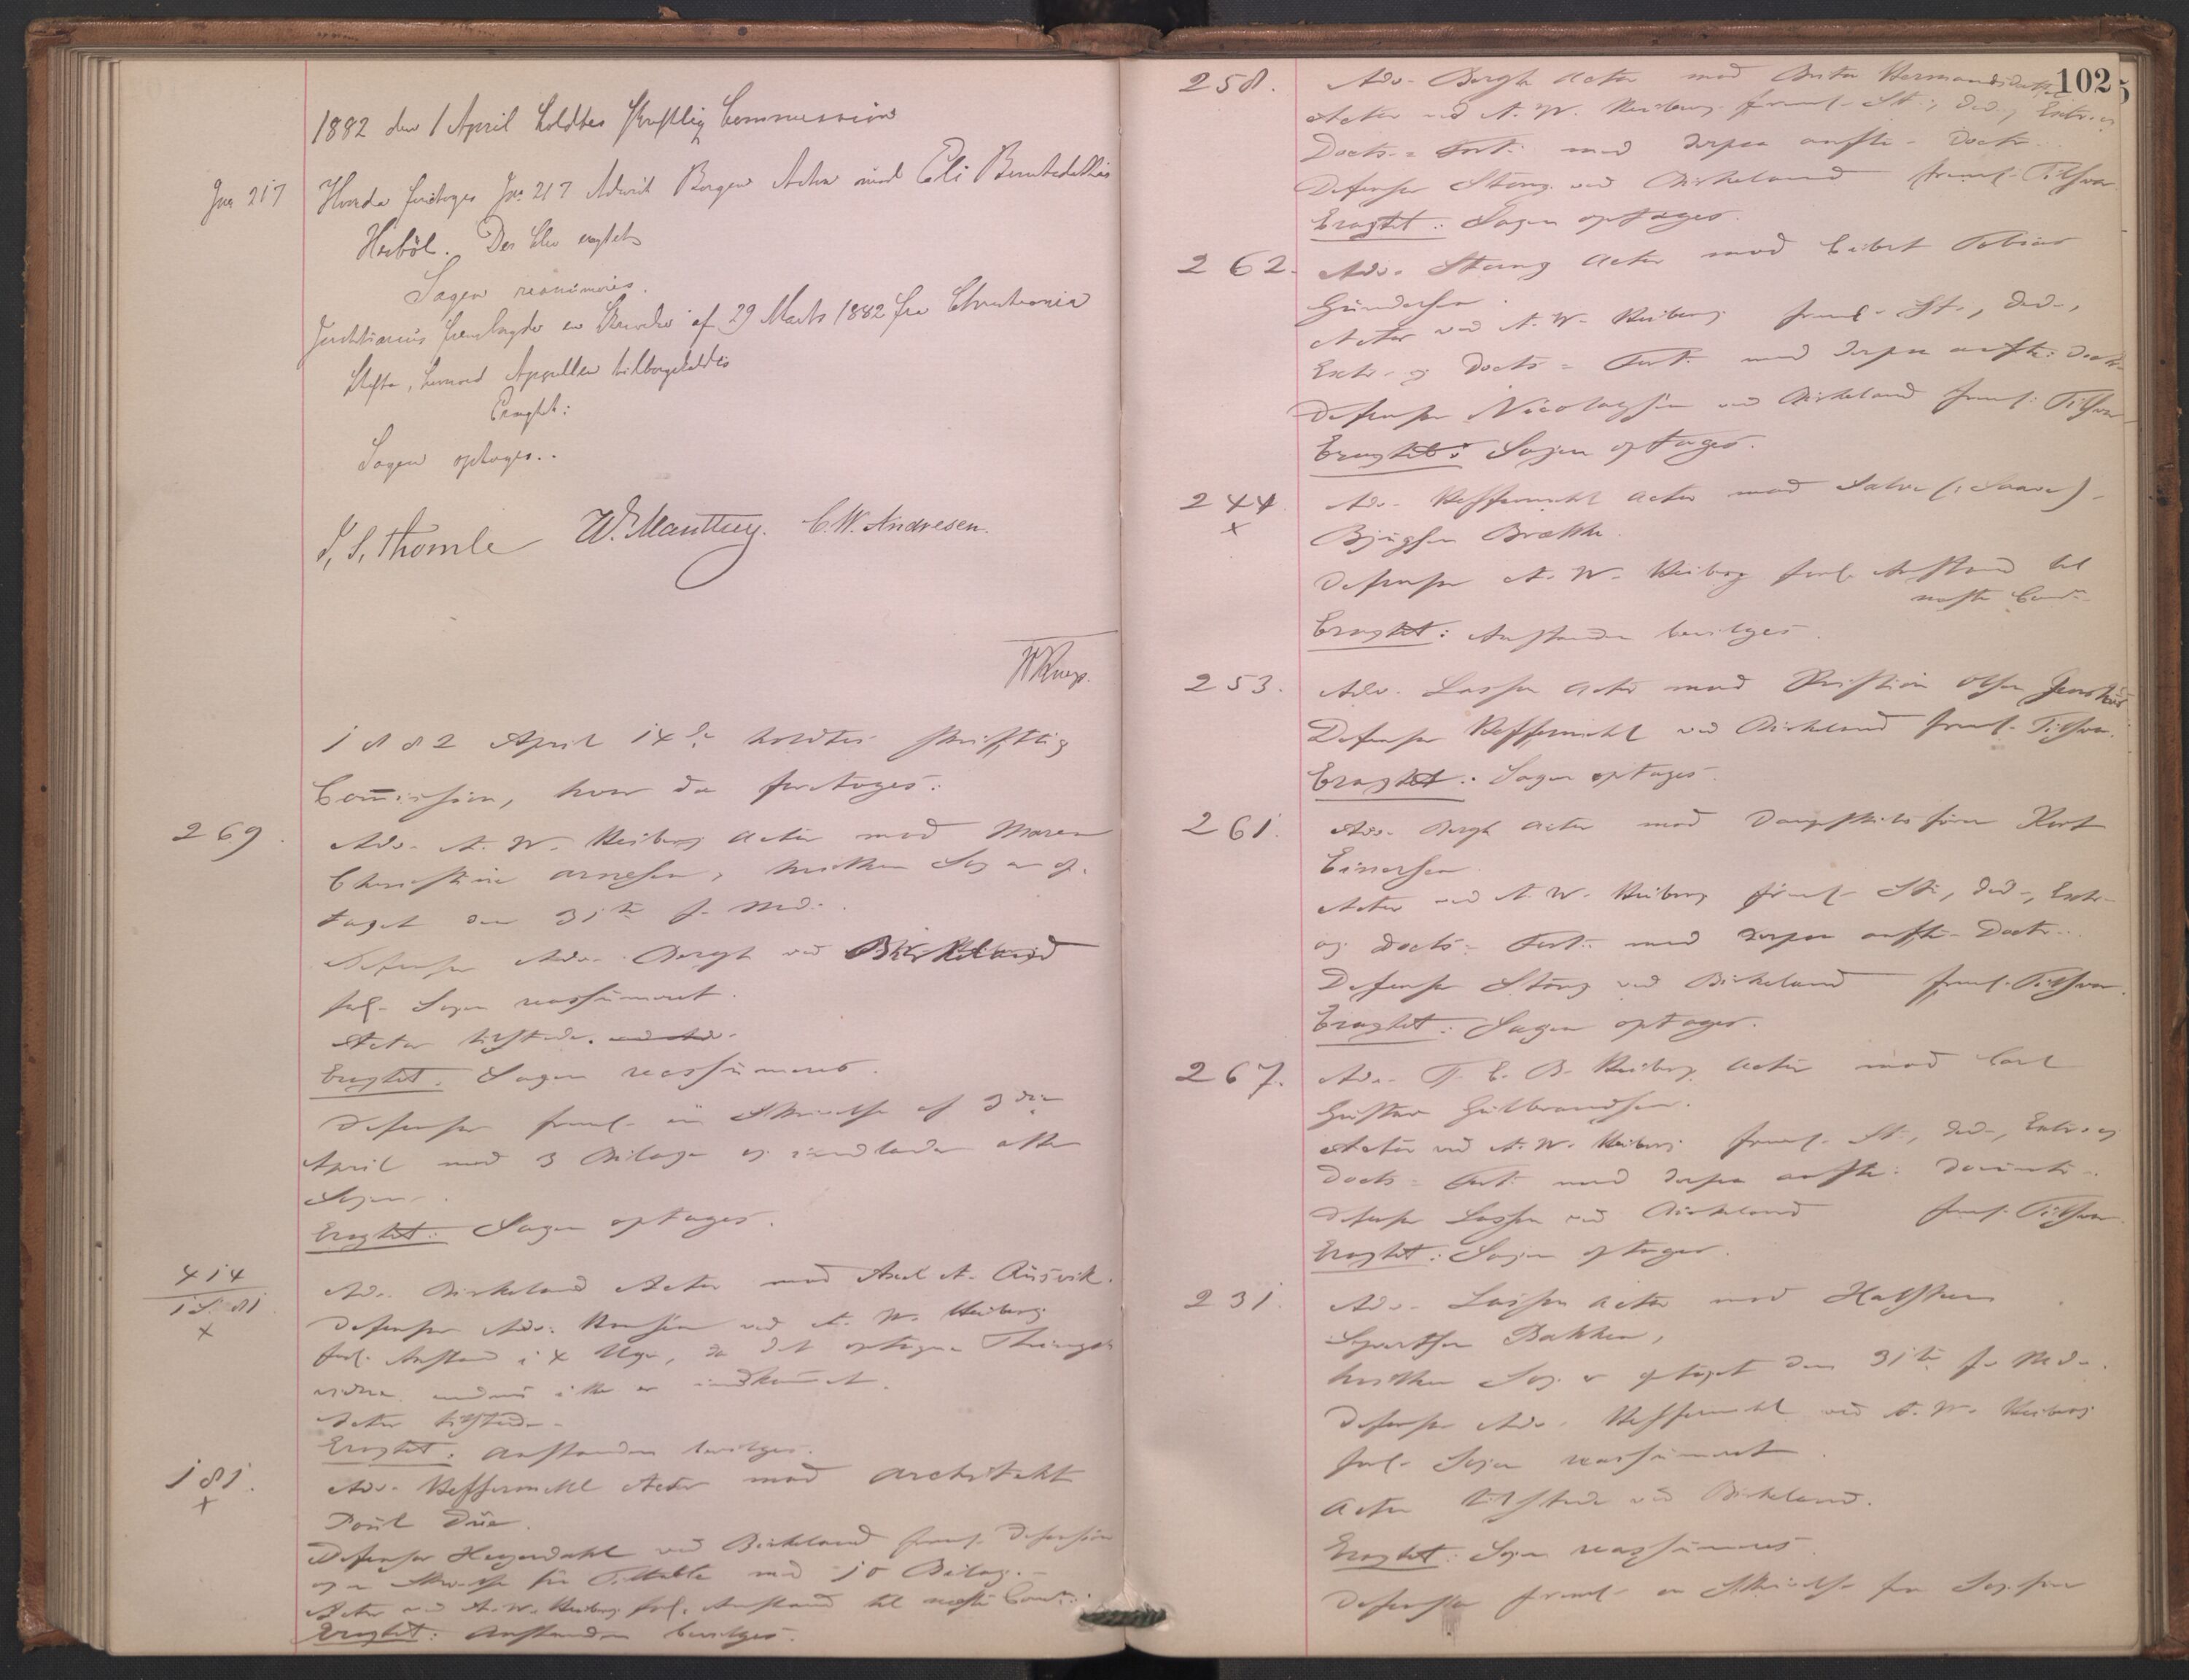 1882 den 1 April holdtes skriftlig Commission
Jno 217
Hvorda foretoges Jno 217 Advocat Bergen Actor mod Eli Berntsdatter
Herböl. Der blev eragtet
Sagen reassumeres.
Justitiarius fremlagde en Skrivelse af 29 Marts 1882 fra Christiania
Stift, hvorved Appellen tilbagekaldes
Eragtet:
Sagen optages..
J. S. Thomle W. Manthey. C. W. Andresen.
1882 April 14de holdtes skriftlig
Commission, hvor da foretoges:
269.
Adv. A. W. Heiberg Actor mod Maren
Christine Arnesen, hvilken Sag er op-
taget den 31te f. Md.
Defensor Adv. Bergh ved Birkeland
forl. Sagen reassumeret.
Actor tilstede.
Eragtet: Sagen reassumeres.
Defensor freml. en Skrivelse af 3die
April med 3 Bilage og indlader atter
Sagen.
Eragtet: Sagen optages.
414
18 81
x
Adv. Birkeland Actor mod Axel A. Qüsvik.
Defensor Adv. ved A. W. Heiberg
forl. Anstand i 4 Uger, da det optagne Things-
vidne endnu ikke er indkommet.
Actor tilstede.
Eragtet: Anstanden bevilges.
181.
x
Adv. Heffermehl Actor mod Architekt
Paul Düe.
Defensor Heyerdahl ved Birkeland freml. Defension
og en Skrivelse fra Tiltalte med 10 Bilag.
Actor ved A. W. Heiberg forl. Anstand til næste Comm.
Eragtet: Anstanden bevilges.
102
258.
Adv. Bergh Actor mod Berta Hermansdatter
Actor ved A. W. Heiberg freml. St., Ded., Extr. og
Docts. = Fort. med derpaa anfte. Doctr.
Defensor Stang ved Birkeland freml. Tilsvar.
Eragtet: Sagen optages.
262.
Adv. Stang Actor mod Eibert Tobias
Gündersen.
Actor ved A. W. Heiberg freml. St., Ded.,
Extr. og Docts. = Fort. med derpaa anfte. Doctr.
Defensor Nicolaysen ved Birkeland freml. Tilsvar
Eragtet: Sagen optages.
244
x
Adv. Heffermehl Actor mod Salve (: Saave)
Bjugsen Brække.
Defensor A. W. Heiberg forl. Anstand til
næste Com.
Eragtet: Anstanden bevilges.
253.
Adv. Lassen Actor mod Christian Olsen
Defensor Heffermehl ved Birkeland freml. Tilsvar.
Eragtet: Sagen optages.
261.
Adv. Bergh Actor mod Dampskibsfører Kort
Einersen
Actor ved A. W. Heiberg freml. St., Ded., Extr.
og Docts. = Fort. med derpaa anfte. Doctr.
Defensor Stang ved Birkeland freml. Tilsvar.
Eragtet: Sagen optages.
267.
Adv. T. E. B. Heiberg Actor mod Carl
Gustav Gulbrandsen.
Actor ved A. W. Heiberg freml. St., Ded., Extr. og
Docts. = Fort. med derpaa anfte.
Defensor Lassen ved Birkeland freml. Tilsvar.
Eragtet: Sagen optages.
231.
Adv. Lassen Actor mod Halsten
Syvertsen Bakken,
hvilken Sag er optaget den 31te f. Md.
Defensor Adv. Heffermehl ved A. W. Heiberg
forl. Sagen reassumeret.
Actor tilstede ved Birkeland.
Eragtet: Sagen reassumeres
Defensor freml. en Skrivelse fra